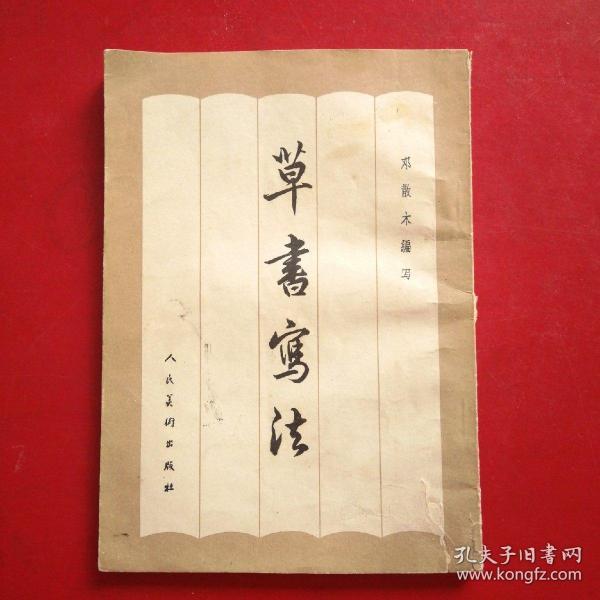 邓散木编写
草书寫法
人民美術出版社
孔夫子旧書网
www.kongfz.com